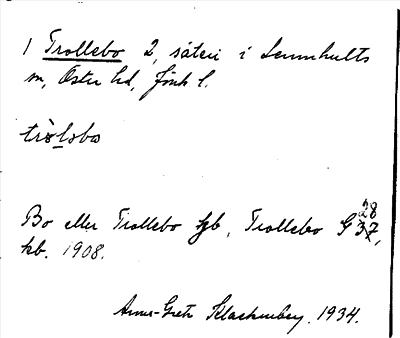 1 Trollebo 2, säteri i Lannhults
sn, Östra hd, Jönk l.
tròlsbω
Bo eller Trollebo jb, Trollebo G 28
37,
kb. 1908.
Anna-Greta Klackenberg. 1934.